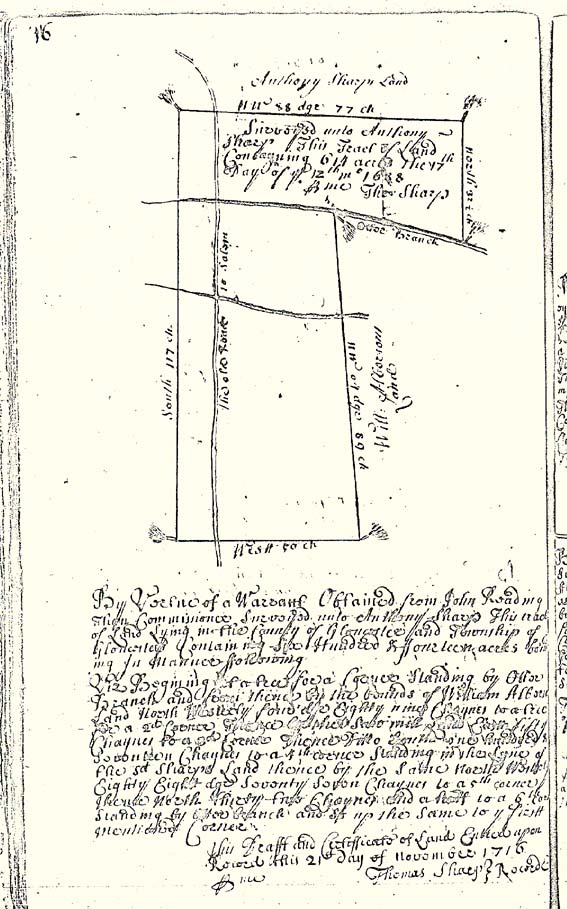 16
Anthony Sharps Land
NW 88 dge 77 ch
Surveyed unto Anthony
Sharp This Tract of Land
Containing 614 acres The 17th
Day of ye 12th mo 1688
me Tho: Sharp
North 32 ch
Otter Branch
The old Roade to Salem
South 117 ch
NW dge 89 ch
Will: Alborsons
Land
West 50 ch
By Vertue of a Warrant Obtained from John Reading
Commissioner Surveyed unto Anthony Sharp This tract
of Land Lying in the County of Gloucester and Township of
Gloucester Containing Six Hundred & fourteen acres
ing In Manner following
Viz Begining at a tree for a Corner Standing by Otter
Branch and from thence by the bounds of William Albors
Land North Westerly four dge Eighty nine Chaynes to a tree
for a 2d Corner thence fifty
Chaynes to a 3d Corner Thence one hundred
Seventeen Chaynes to a 4th corner Standing in the Line of
the sd Sharps Land thence by the same North West
Eighty Eight dge Seventy Seven Chaynes to a 5th corner
thence North thirty two Chaynes and a halfe to a 6 tree
Standing by Otter Branch and up the same to ye first
mentioned Corner
This Draft and Certificate of Land Entred upon
Record this 21st day of November 1716
me Thomas Sharp Record